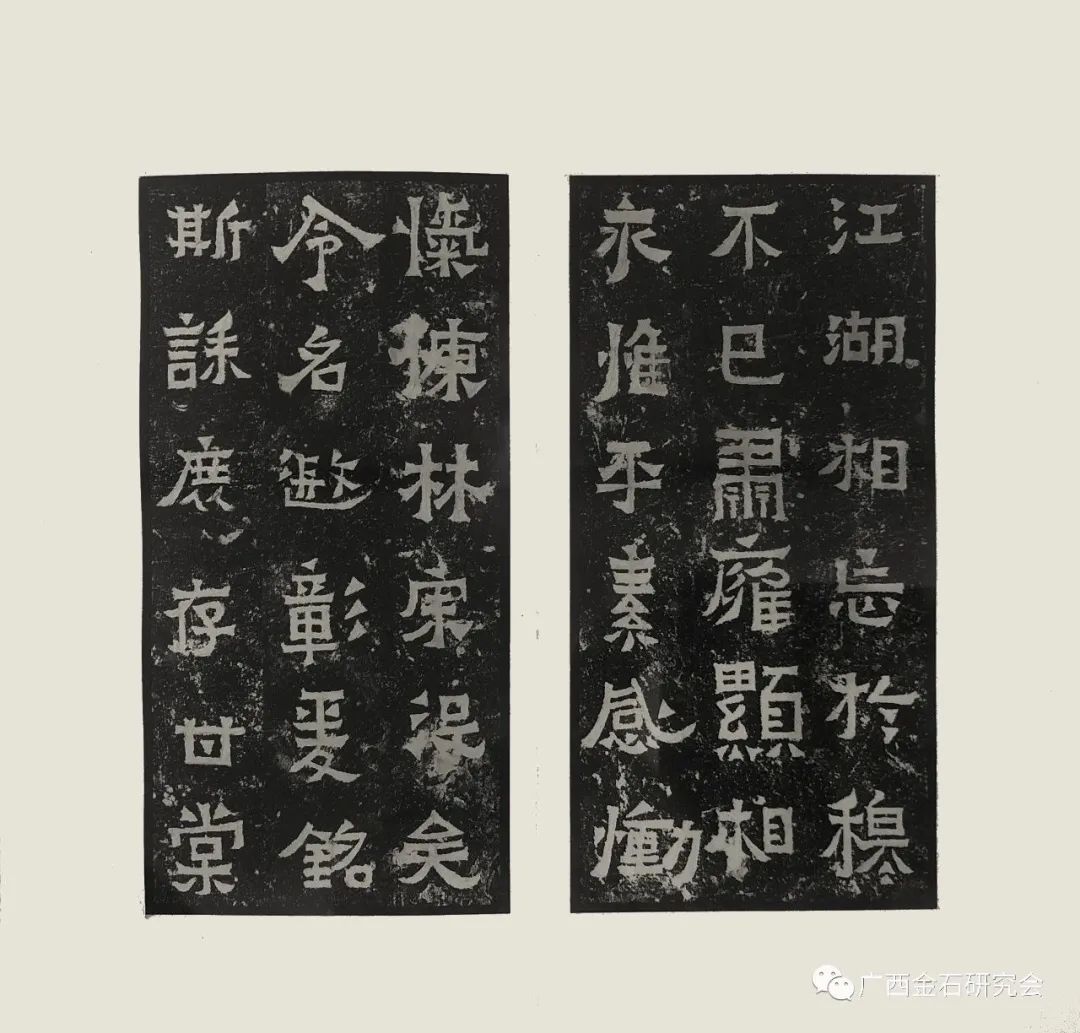 江湖相忘於穆
不已肅雍顯相
永惟平素感慟
愾慷林宗没矣
令名遐彰爰銘
斯誄庶存甘棠
广西金石研究会